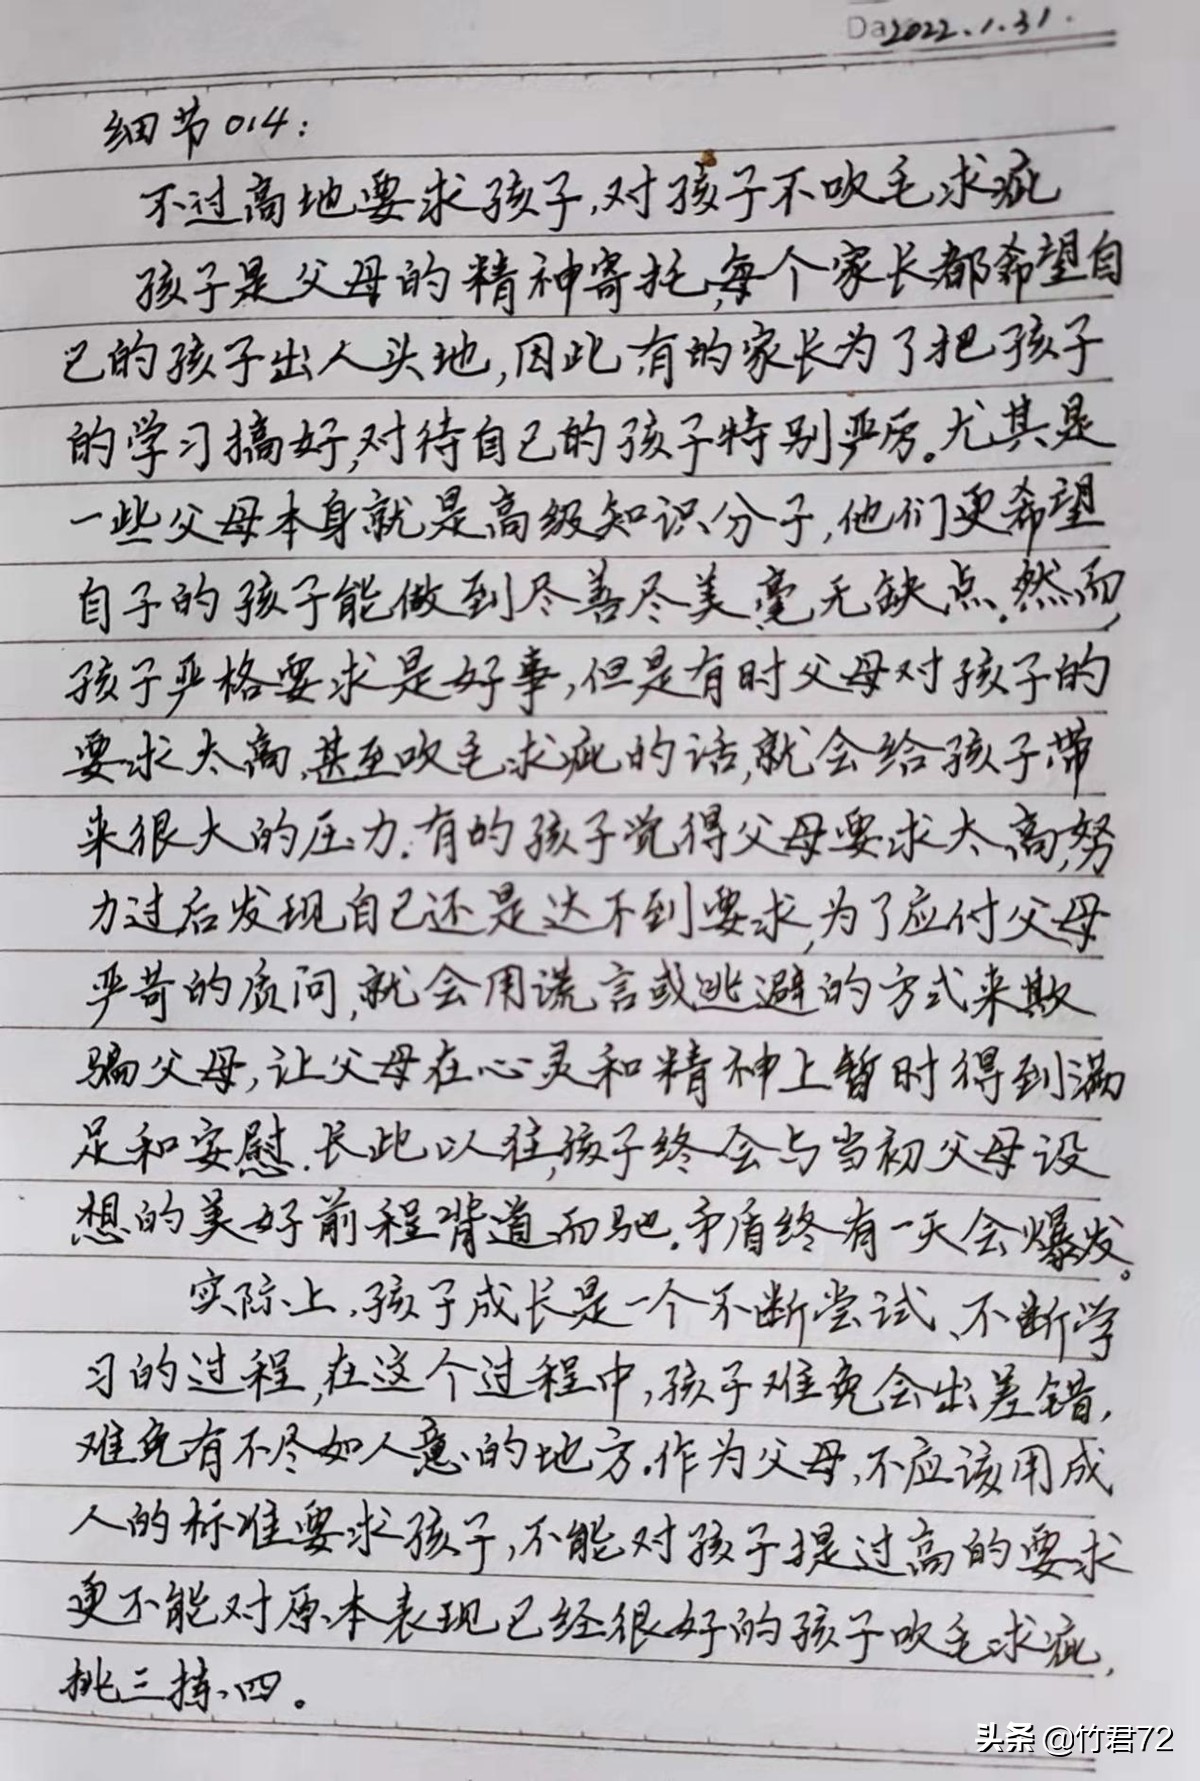 Da 2022.1.31.
细节014:
不过高地要求孩子,对孩子不吹毛求疵
孩子是父母的精神寄托,每个家长都希望自
己的孩子出人头地,因此,有的家长为了把孩子
的学习搞好,对待自己的孩子特别严厉。尤其是
一些父母本身就是高级知识分子,他们更希望
自子的孩子能做到尽善尽美,毫无缺点.然而,
孩子严格要求是好事,但是有时父母对孩子的
要求太高,甚至吹毛求疵的话,就会给孩子带
来很大的压力.有的孩子觉得父母要求太高,努
力过后发现自己还是达不到要求,为了应付父母
严苛的质问,就会用谎言或逃避的方式来欺
骗父母,让父母在心灵和精神上暂时得到满
足和安慰.长此以往,孩子终会与当初父母设
想的美好前程背道而驰.矛盾终有一天会爆发。
实际上,孩子成长是一个不断尝试、不断学
习的过程,在这个过程中,孩子难免会出差错,
难免有不尽如人意的地方.作为父母,不应该用成
人的标准要求孩子,不能对孩子提过高的要求
更不能对原本表现已经很好的孩子吹毛求疵,
挑三拣四。
头条 @竹君72